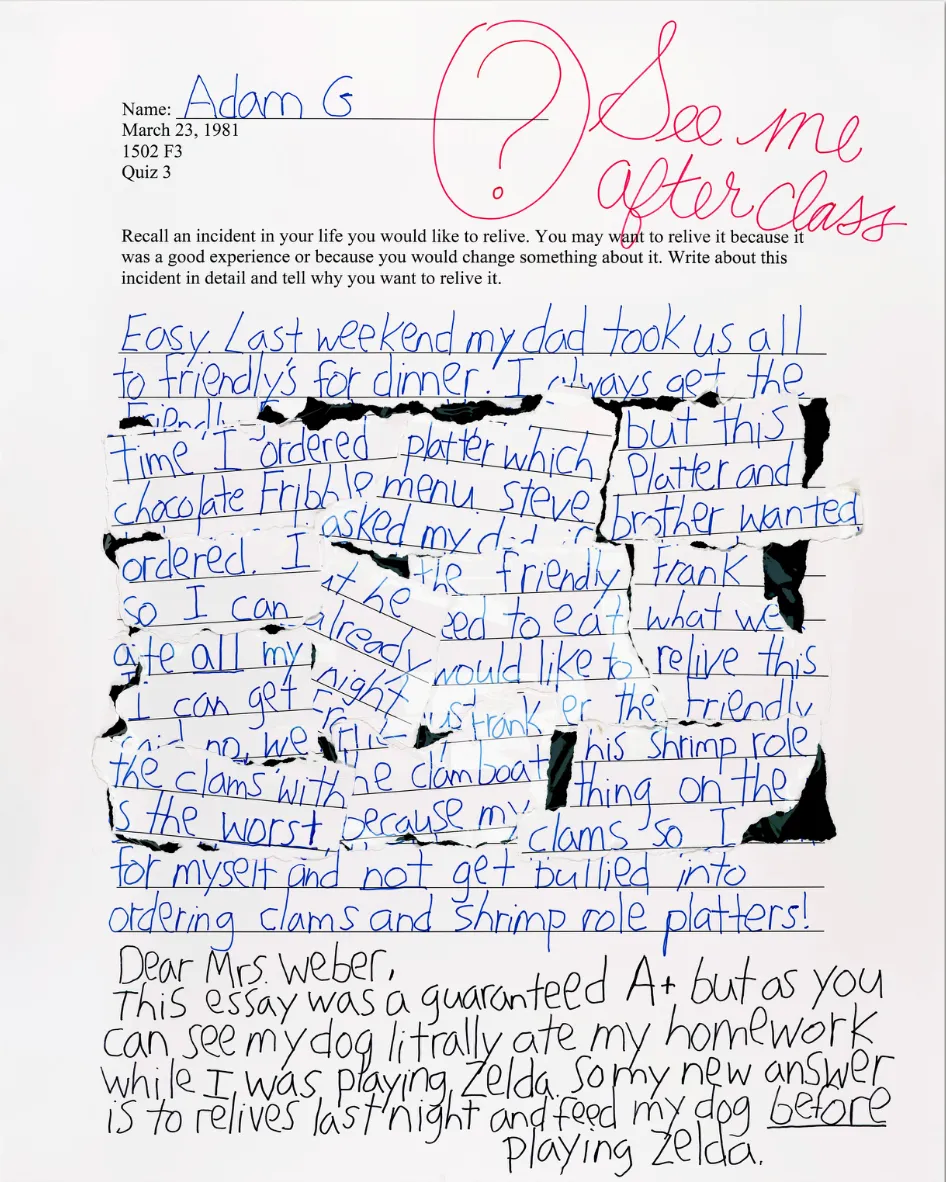 Name: Adam G
March 23, 1981
1502 F3
Quiz 3
?
See me
after class
Recall an incident in your life you would like to relive. You may want to relive it because it
was a good experience or because you would change something about it. Write about this
incident in detail and tell why you want to relive it.
Easy. Last weekend my dad took us all
to friendly's for dinner. I always get the
time I ordered platter which but this
chocolate Fribble menu Steve Platter and
asked my brother wanted
ordered. I the friendly Frank
so I can at he to eat what we
ate all my already would like to relive this
I can get night Frank er the Friendly
no, we his shrimp role
the clams with he clamboat thing on the
s the worst because my clams so I
for myself and not get bullied into
ordering clams and shrimp role platters!
Dear Mrs. Weber,
This essay was a guaranteed A+ but as you
can see my dog litrally ate my homework
while I was playing Zelda. So my new answer
is to relives last night and feed my dog before
playing Zelda.